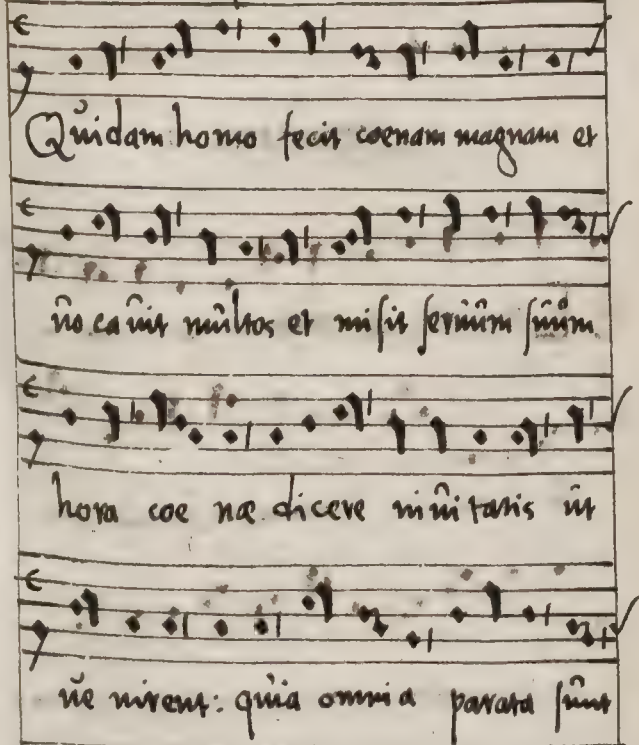 Quidam homo fecit coenam magnam et
uo.cauit multos et misit seruum suum
hora coe næ dicere inuitatis ut
ue nirent: quia omnia parata sunt